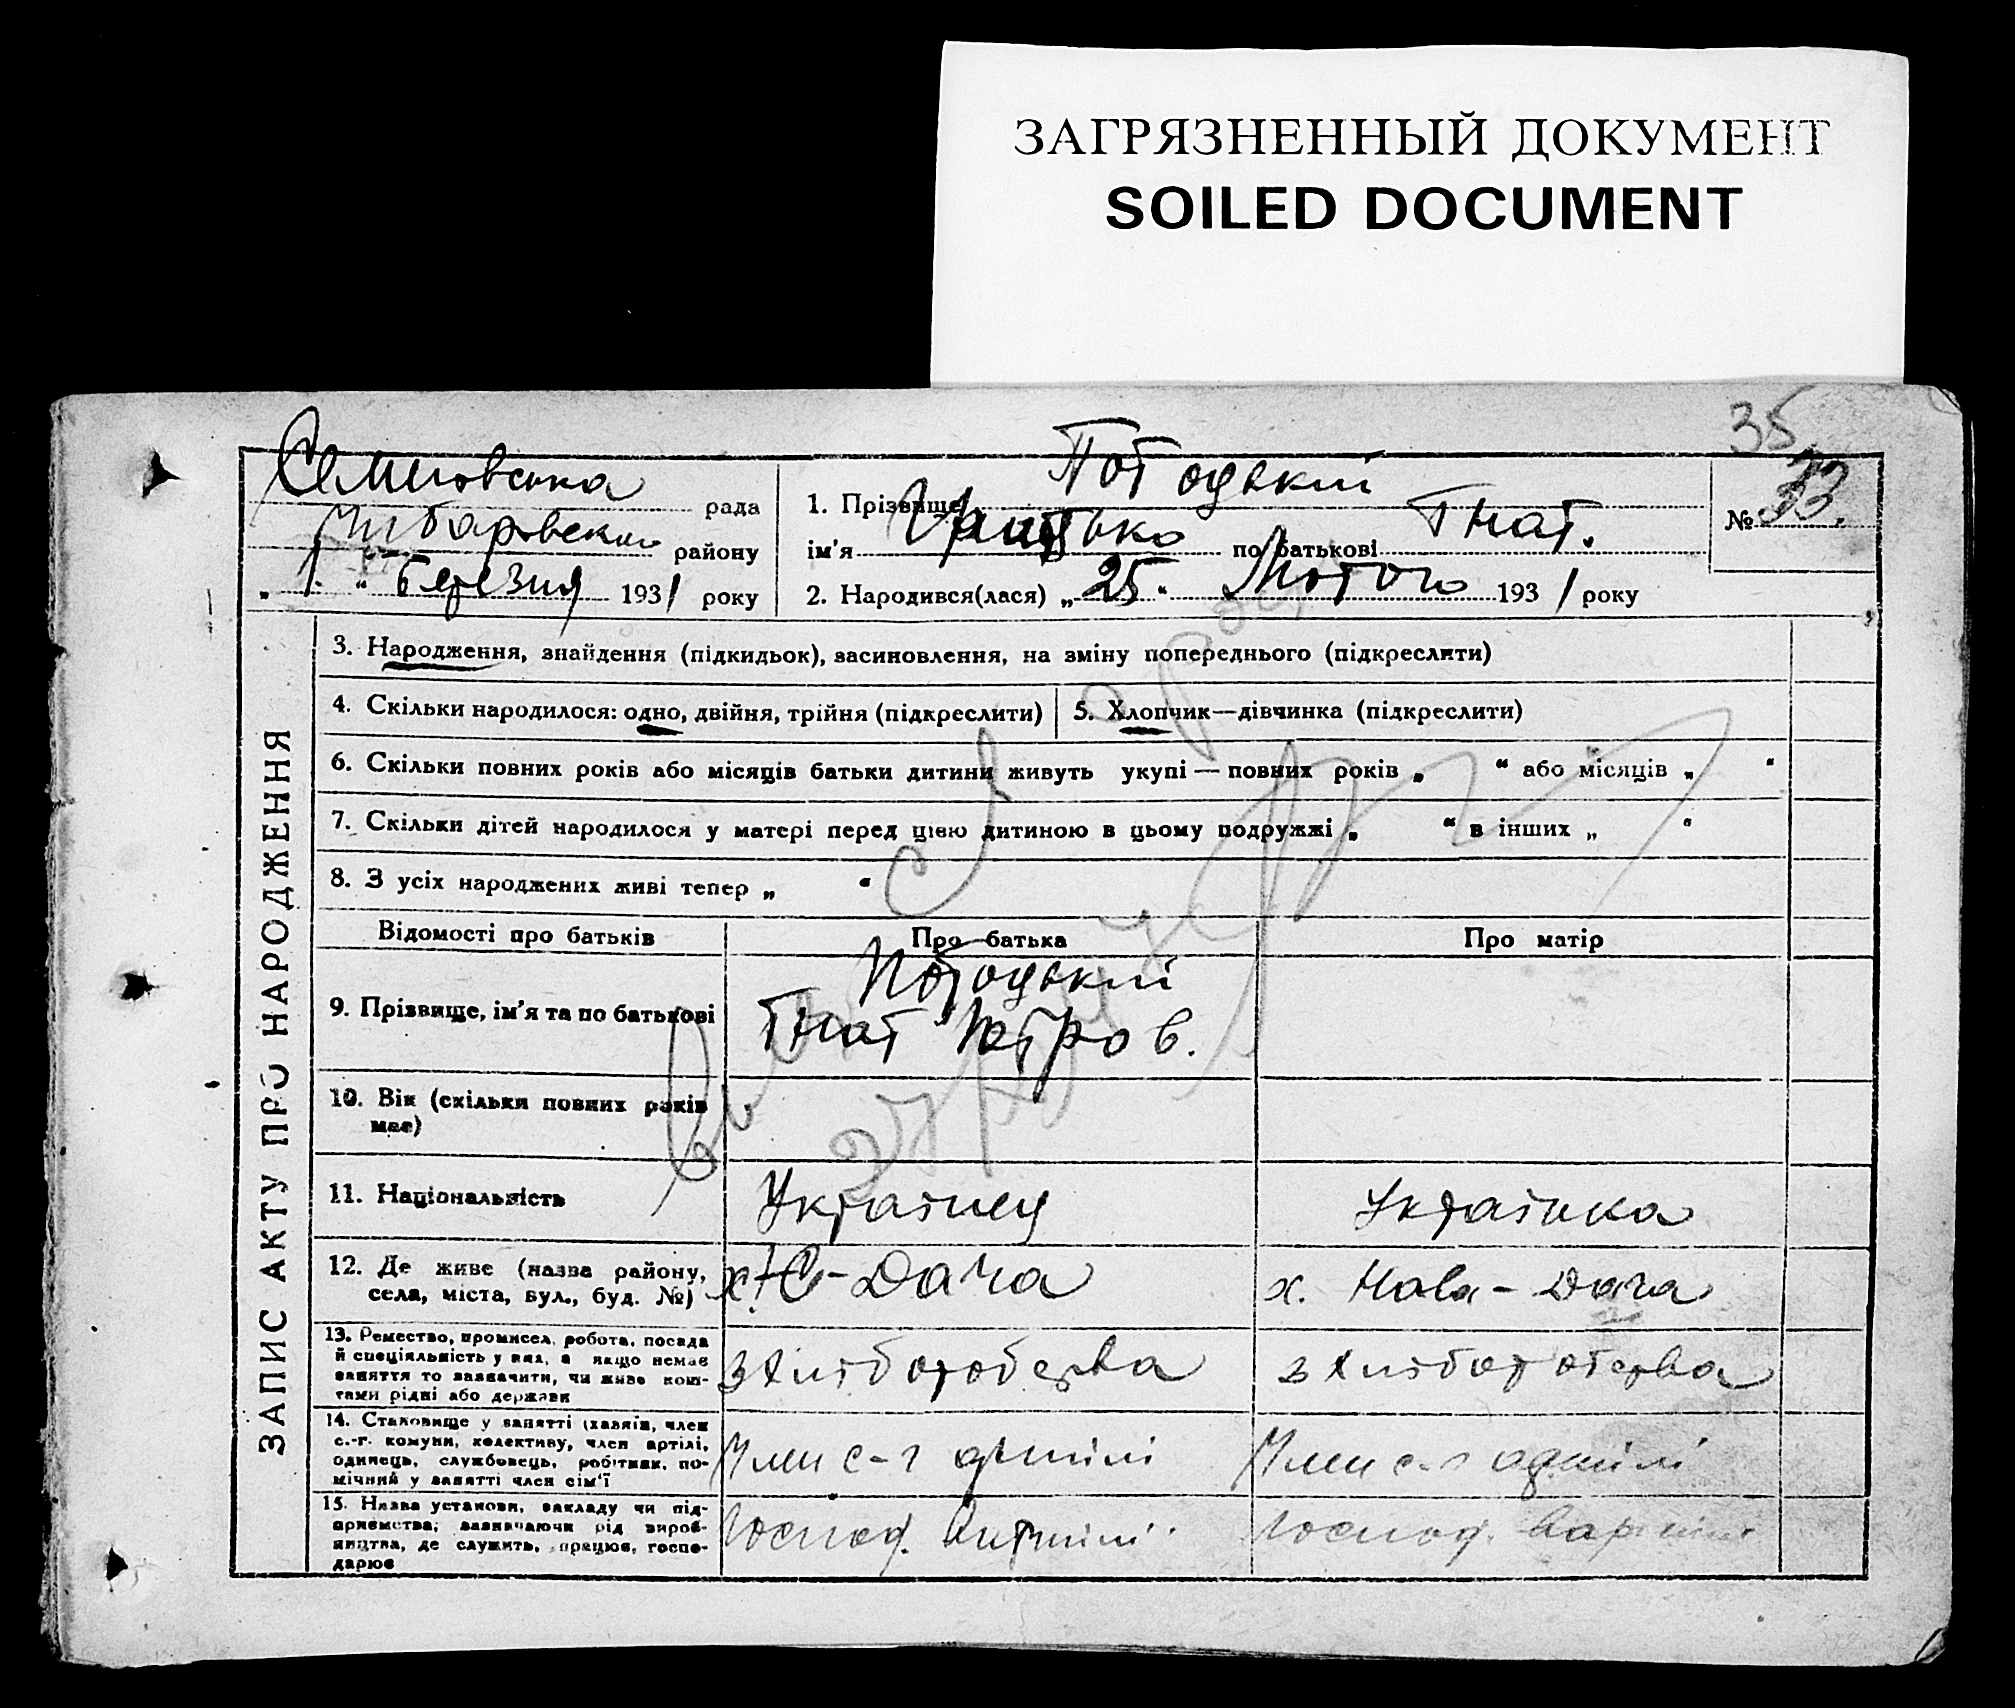 ЗАГРЯЗНЕННЫЙ ДОКУМЕНТ
SOILED DOCUMENT
35
№ 33.
рада
району
„ 1 “ Березня 1931 року
1. Прізвище Потоцький
ім'я Грицько по батькові Гнат.
2. Народився(лася) „25“ Лютого 1931 року
ЗАПИС АКТУ ПРО НАРОДЖЕННЯ
3. Народження, знайдення (підкидьок), засиновлення, на зміну попереднього (підкреслити)
4. Скільки народилося: одно, двійня, трійня (підкреслити)
5. Хлопчик—дівчинка (підкреслити)
6. Скільки повних років або місяців батьки дитини живуть укупі — повних років „ “ або місяців „ “
7. Скільки дітей народилося у матері перед цією дитиною в цьому подружжі „ “ в інших „ “
8. З усіх народжених живі тепер „ “
Відомості про батьків
Про батька
Про матір
9. Прізвище, ім'я та по батькові
Потоцький
Гнат Петров.
10. Вік (скільки повних років
має)
11. Національність
Українец
Українка
12. Де живе (назва району,
села, міста, вул., буд. №)
х. Н-Дача
х. Нова-Дача
13. Ремество, промисел, робота, посада
й спеціяльність у них, а якщо немає
заняття то зазначити, чи живе кош-
тами рідні або держави
з хліборобства
з хліборобства
14. Становище у занятті (хазяїн, член
с.-г. комуни, колективу, член артілі,
одинець, службовець, робітник, по-
мічний у занятті член сім'ї
Член с-г артілі
Член с-г артілі
15. Назва установи, закладу чи під-
приємства, зазначаючи рід вироб-
ництва, де служить, працює, госпо-
дарює
Господ. в артілі
Господ. в артілі